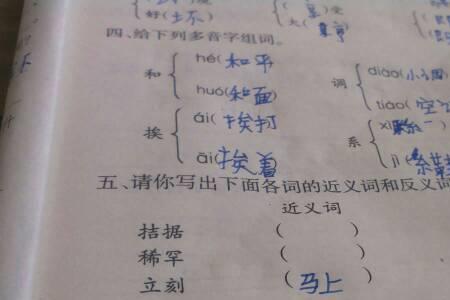 好(坏)
四、给下列多音字组词。
和 hé(和平 调 diào(小调
huó(和面) tiáo(空
挨 ái(挨打 系 xì
āi(挨着 jì(系
五、请你写出下面各词的近义词和反义词
近义词
拮据 ( )
稀罕 ( )
立刻 (马上)